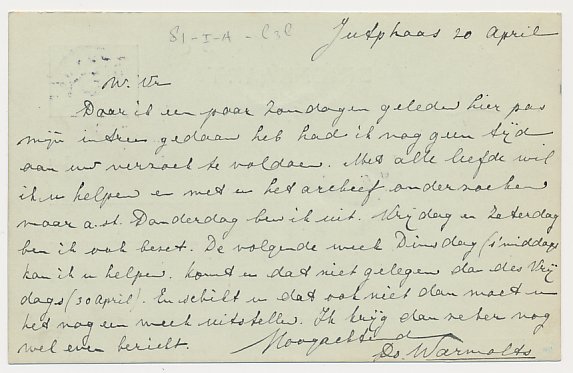 81-I-A-
Jutphaas 20 April
W. Vr
Daar ik een paar Zondagen geleden hier pas
mijn intree gedaan heb had ik nog geen tijd
aan uw verzoek te voldoen. Met alle liefde wil
ik u helpen en met u het archief onderzoeken
maar a.st. Donderdag ben ik uit. Vrijdag en Zaterdag
ben ik ook bezet. De volgende week Dinsdag ('s middags
kan ik u helpen. Komt u dat niet gelegen dan des Vrij
dags (30 april). En schikt u dat ook niet dan moet u
het nog een week uitstellen. Ik krijg dan zeker nog
wel even bericht. Hoogachtend
Ds. Warmolts